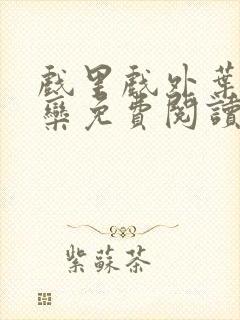 戲里戲外葉
欒免費閱讀
紫蘇茶